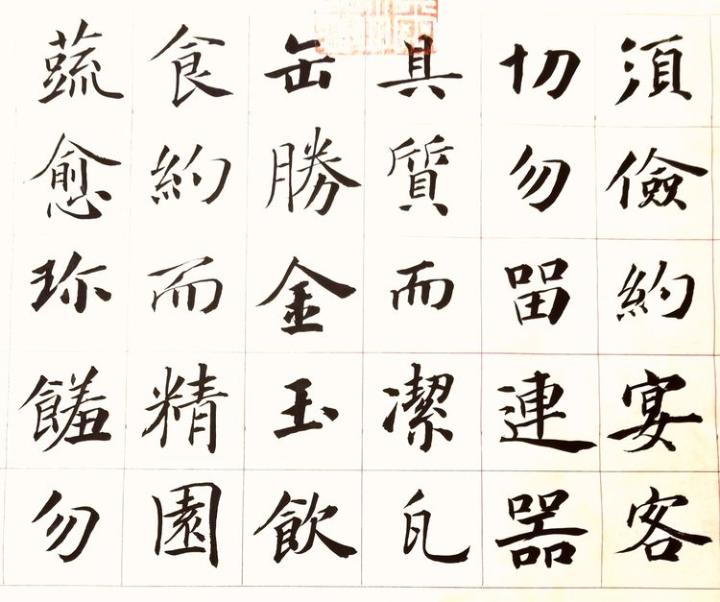 須儉約宴客
切勿㽞連器
具質而潔瓦
缶勝金玉飲
食約而精園
蔬愈珎饈勿